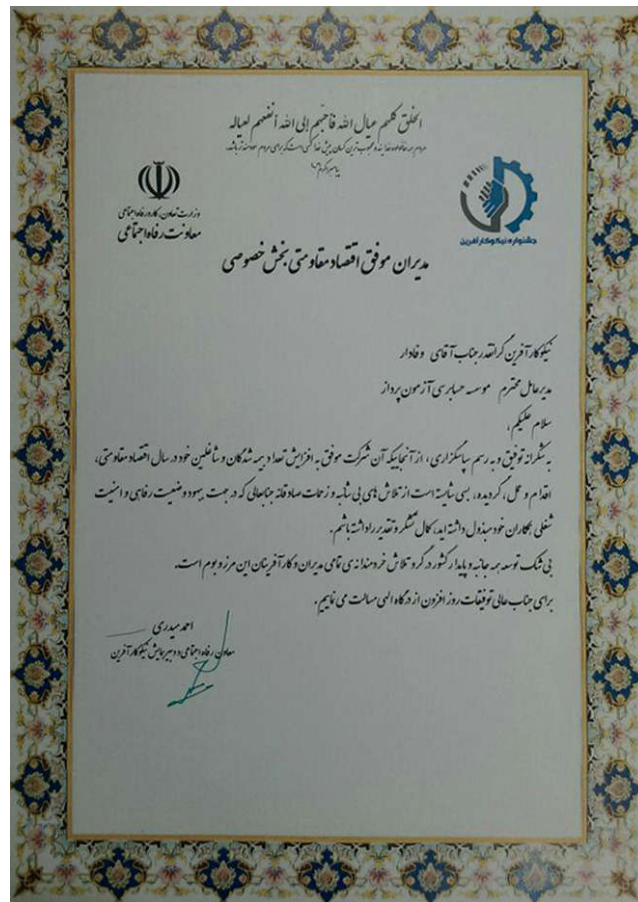 الخلق کلهم عیال الله فأحبهم إلی الله أنفعهم لعیاله
مردم همه خانواده خدایند و محبوب ترین کسان پیش خدا کسی است که برای مردم سودمندتر باشد.
پیامبر اکرم (ص)
وزارت تعاون، کار و رفاه اجتماعی
معاونت رفاه اجتماعی
جشنواره نیکوکارآفرین
مدیران موفق اقتصاد مقاومتی بخش خصوصی
نیکوکارآفرین گرانقدر جناب آقای وفادار
مدیرعامل محترم موسسه حسابرسی آزمون پرداز
سلام علیکم،
به شکرانه توفیق و به رسم سپاسگزاری، از آنجاییکه آن شرکت موفق به افزایش تعداد بیمه شدگان و شاغلین خود در سال اقتصاد مقاومتی،
اقدام و عمل، گردیده، بسی شایسته است از تلاش های بی شائبه و زحمات صادقانه جنابعالی که در جهت بهبود وضعیت رفاهی و امنیت
شغلی همکاران خود مبذول داشته اید، کمال تشکر و تقدیر را داشته باشم.
بی شک توسعه همه جانبه و پایدار کشور در گرو تلاش خردمندانه ی تمامی مدیران و کارآفرینان این مرز و بوم است.
برای جناب عالی توفیقات روز افزون از درگاه الهی مسالت می نماییم.
احمد میدری
معاون رفاه اجتماعی و دبیر همایش نیکوکارآفرین